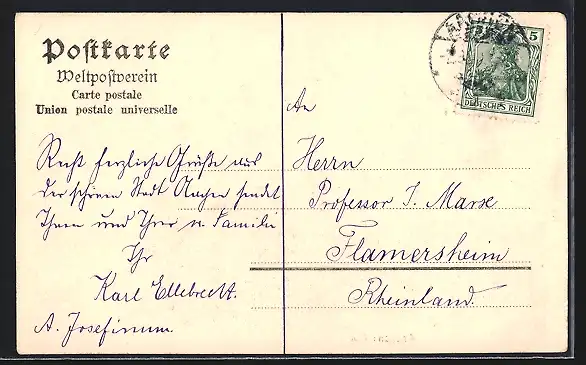 Postkarte
Weltpostverein
Carte postale
Union postale universelle
Recht herzliche Grüße aus
der schönen Stadt Aachen sendet
Ihnen und Ihrer w. Familie
Ihr
Karl Ellebrecht.
A. Josefinum.
AACHEN
5
DEUTSCHES REICH
An
Herrn
Professor J. Marse
Flamersheim
Rheinland.